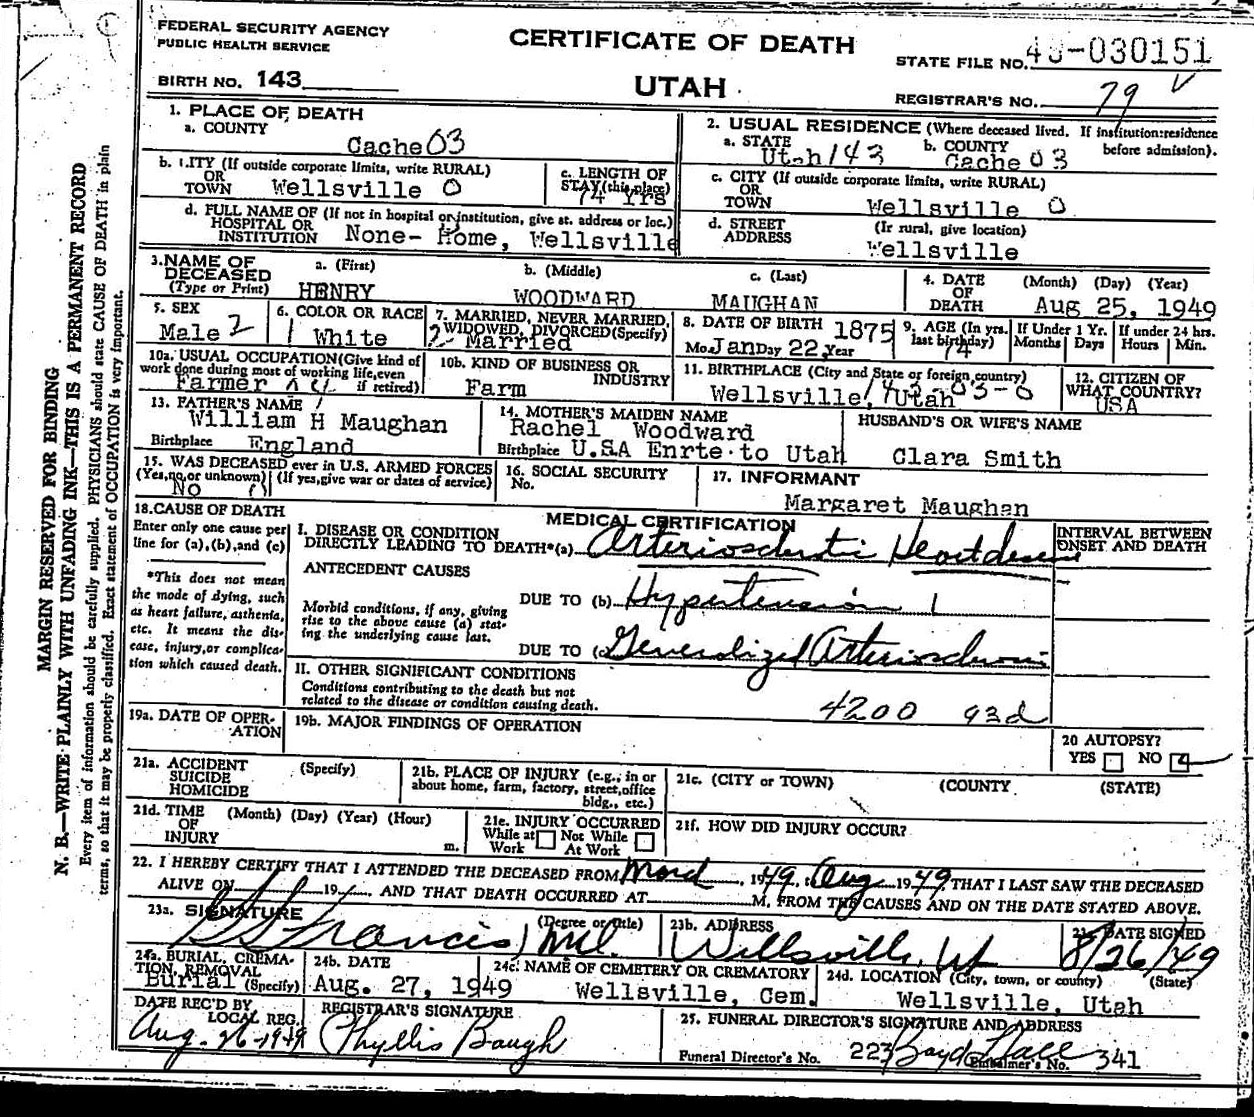 FEDERAL SECURITY AGENCY
PUBLIC HEALTH SERVICE
BIRTH NO. 143
CERTIFICATE OF DEATH
UTAH
STATE FILE NO. -030151
REGISTRAR'S NO. 79
MARGIN RESERVED FOR BINDING
N. B.—WRITE PLAINLY WITH UNFADING INK—THIS IS A PERMANENT RECORD
Every item of information should be carefully supplied. PHYSICIANS should state CAUSE OF DEATH in plain
terms, so that it may be properly classified. Exact statement of OCCUPATION is very important.
1. PLACE OF DEATH
a. COUNTY
Cache 03
b. CITY (If outside corporate limits, write RURAL)
OR
TOWN Wellsville 0
c. LENGTH OF
STAY (this place)
74 Yrs
d. FULL NAME OF (If not in hospital or institution, give st. address or loc.)
HOSPITAL OR
INSTITUTION None- Home, Wellsville
2. USUAL RESIDENCE (Where deceased lived. If institution:residence
before admission).
a. STATE b. COUNTY
Utah 143 Cache 03
c. CITY (If outside corporate limits, write RURAL)
OR
TOWN Wellsville 0
d. STREET (If rural, give location)
ADDRESS Wellsville
3. NAME OF
DECEASED
(Type or Print)
a. (First) b. (Middle) c. (Last)
HENRY WOODWARD MAUGHAN
4. DATE (Month) (Day) (Year)
OF
DEATH Aug 25, 1949
5. SEX
Male 2
6. COLOR OR RACE
1 White
7. MARRIED, NEVER MARRIED,
WIDOWED, DIVORCED (Specify)
2- Married
8. DATE OF BIRTH 1875
Mo. Jan Day 22, Year
9. AGE (In yrs.
last birthday)
74
If Under 1 Yr.
Months Days
If under 24 hrs.
Hours Min.
10a. USUAL OCCUPATION (Give kind of
work done during most of working life, even
Farmer if retired)
10b. KIND OF BUSINESS OR
INDUSTRY
Farm
11. BIRTHPLACE (City and State or foreign country)
Wellsville, Utah 143-03-0
12. CITIZEN OF
WHAT COUNTRY?
USA
13. FATHER'S NAME
William H Maughan
Birthplace England
14. MOTHER'S MAIDEN NAME
Rachel Woodward
Birthplace U.S.A Enrte. to Utah
HUSBAND'S OR WIFE'S NAME
Clara Smith
15. WAS DECEASED ever in U.S. ARMED FORCES
(Yes, no, or unknown) (If yes, give war or dates of service)
No 0
16. SOCIAL SECURITY
No.
17. INFORMANT
Margaret Maughan
18. CAUSE OF DEATH
Enter only one cause per
line for (a), (b), and (c)
*This does not mean
the mode of dying, such
as heart failure, asthenia,
etc. It means the dis-
ease, injury, or complica-
tion which caused death.
MEDICAL CERTIFICATION
I. DISEASE OR CONDITION
DIRECTLY LEADING TO DEATH*(a) Arteriosclerotic Heart disease
INTERVAL BETWEEN
ONSET AND DEATH
ANTECEDENT CAUSES
Morbid conditions, if any, giving
rise to the above cause (a) stat-
ing the underlying cause last.
DUE TO (b) Hypertension 1
DUE TO (c) Generalized Arteriosclerosis
II. OTHER SIGNIFICANT CONDITIONS
Conditions contributing to the death but not
related to the disease or condition causing death.
4200 93d
19a. DATE OF OPER-
ATION
19b. MAJOR FINDINGS OF OPERATION
20 AUTOPSY?
YES NO
21a. ACCIDENT (Specify)
SUICIDE
HOMICIDE
21b. PLACE OF INJURY (e.g., in or
about home, farm, factory, street, office
bldg., etc.)
21c. (CITY or TOWN) (COUNTY (STATE)
21d. TIME (Month) (Day) (Year) (Hour)
OF
INJURY m.
21e. INJURY OCCURRED
While at Not While
Work At Work
21f. HOW DID INJURY OCCUR?
22. I HEREBY CERTIFY THAT I ATTENDED THE DECEASED FROM March, 1949, to Aug 1949 THAT I LAST SAW THE DECEASED
ALIVE ON 19 AND THAT DEATH OCCURRED AT M, FROM THE CAUSES AND ON THE DATE STATED ABOVE.
23a. SIGNATURE (Degree or title)
Francis, MD.
23b. ADDRESS
Wellsville, Ut
DATE SIGNED
8/26/49
24a. BURIAL, CREMA-
TION, REMOVAL
Burial (Specify)
24b. DATE
Aug. 27, 1949
24c. NAME OF CEMETERY OR CREMATORY
Wellsville, Cem.
24d. LOCATION (City, town, or county) (State)
Wellsville, Utah
DATE REC'D BY
LOCAL REG.
Aug. 26-1949
REGISTRAR'S SIGNATURE
Phyllis Baugh
25. FUNERAL DIRECTOR'S SIGNATURE AND ADDRESS
Boyd Hall
Funeral Director's No. 223 Embalmer's No. 341